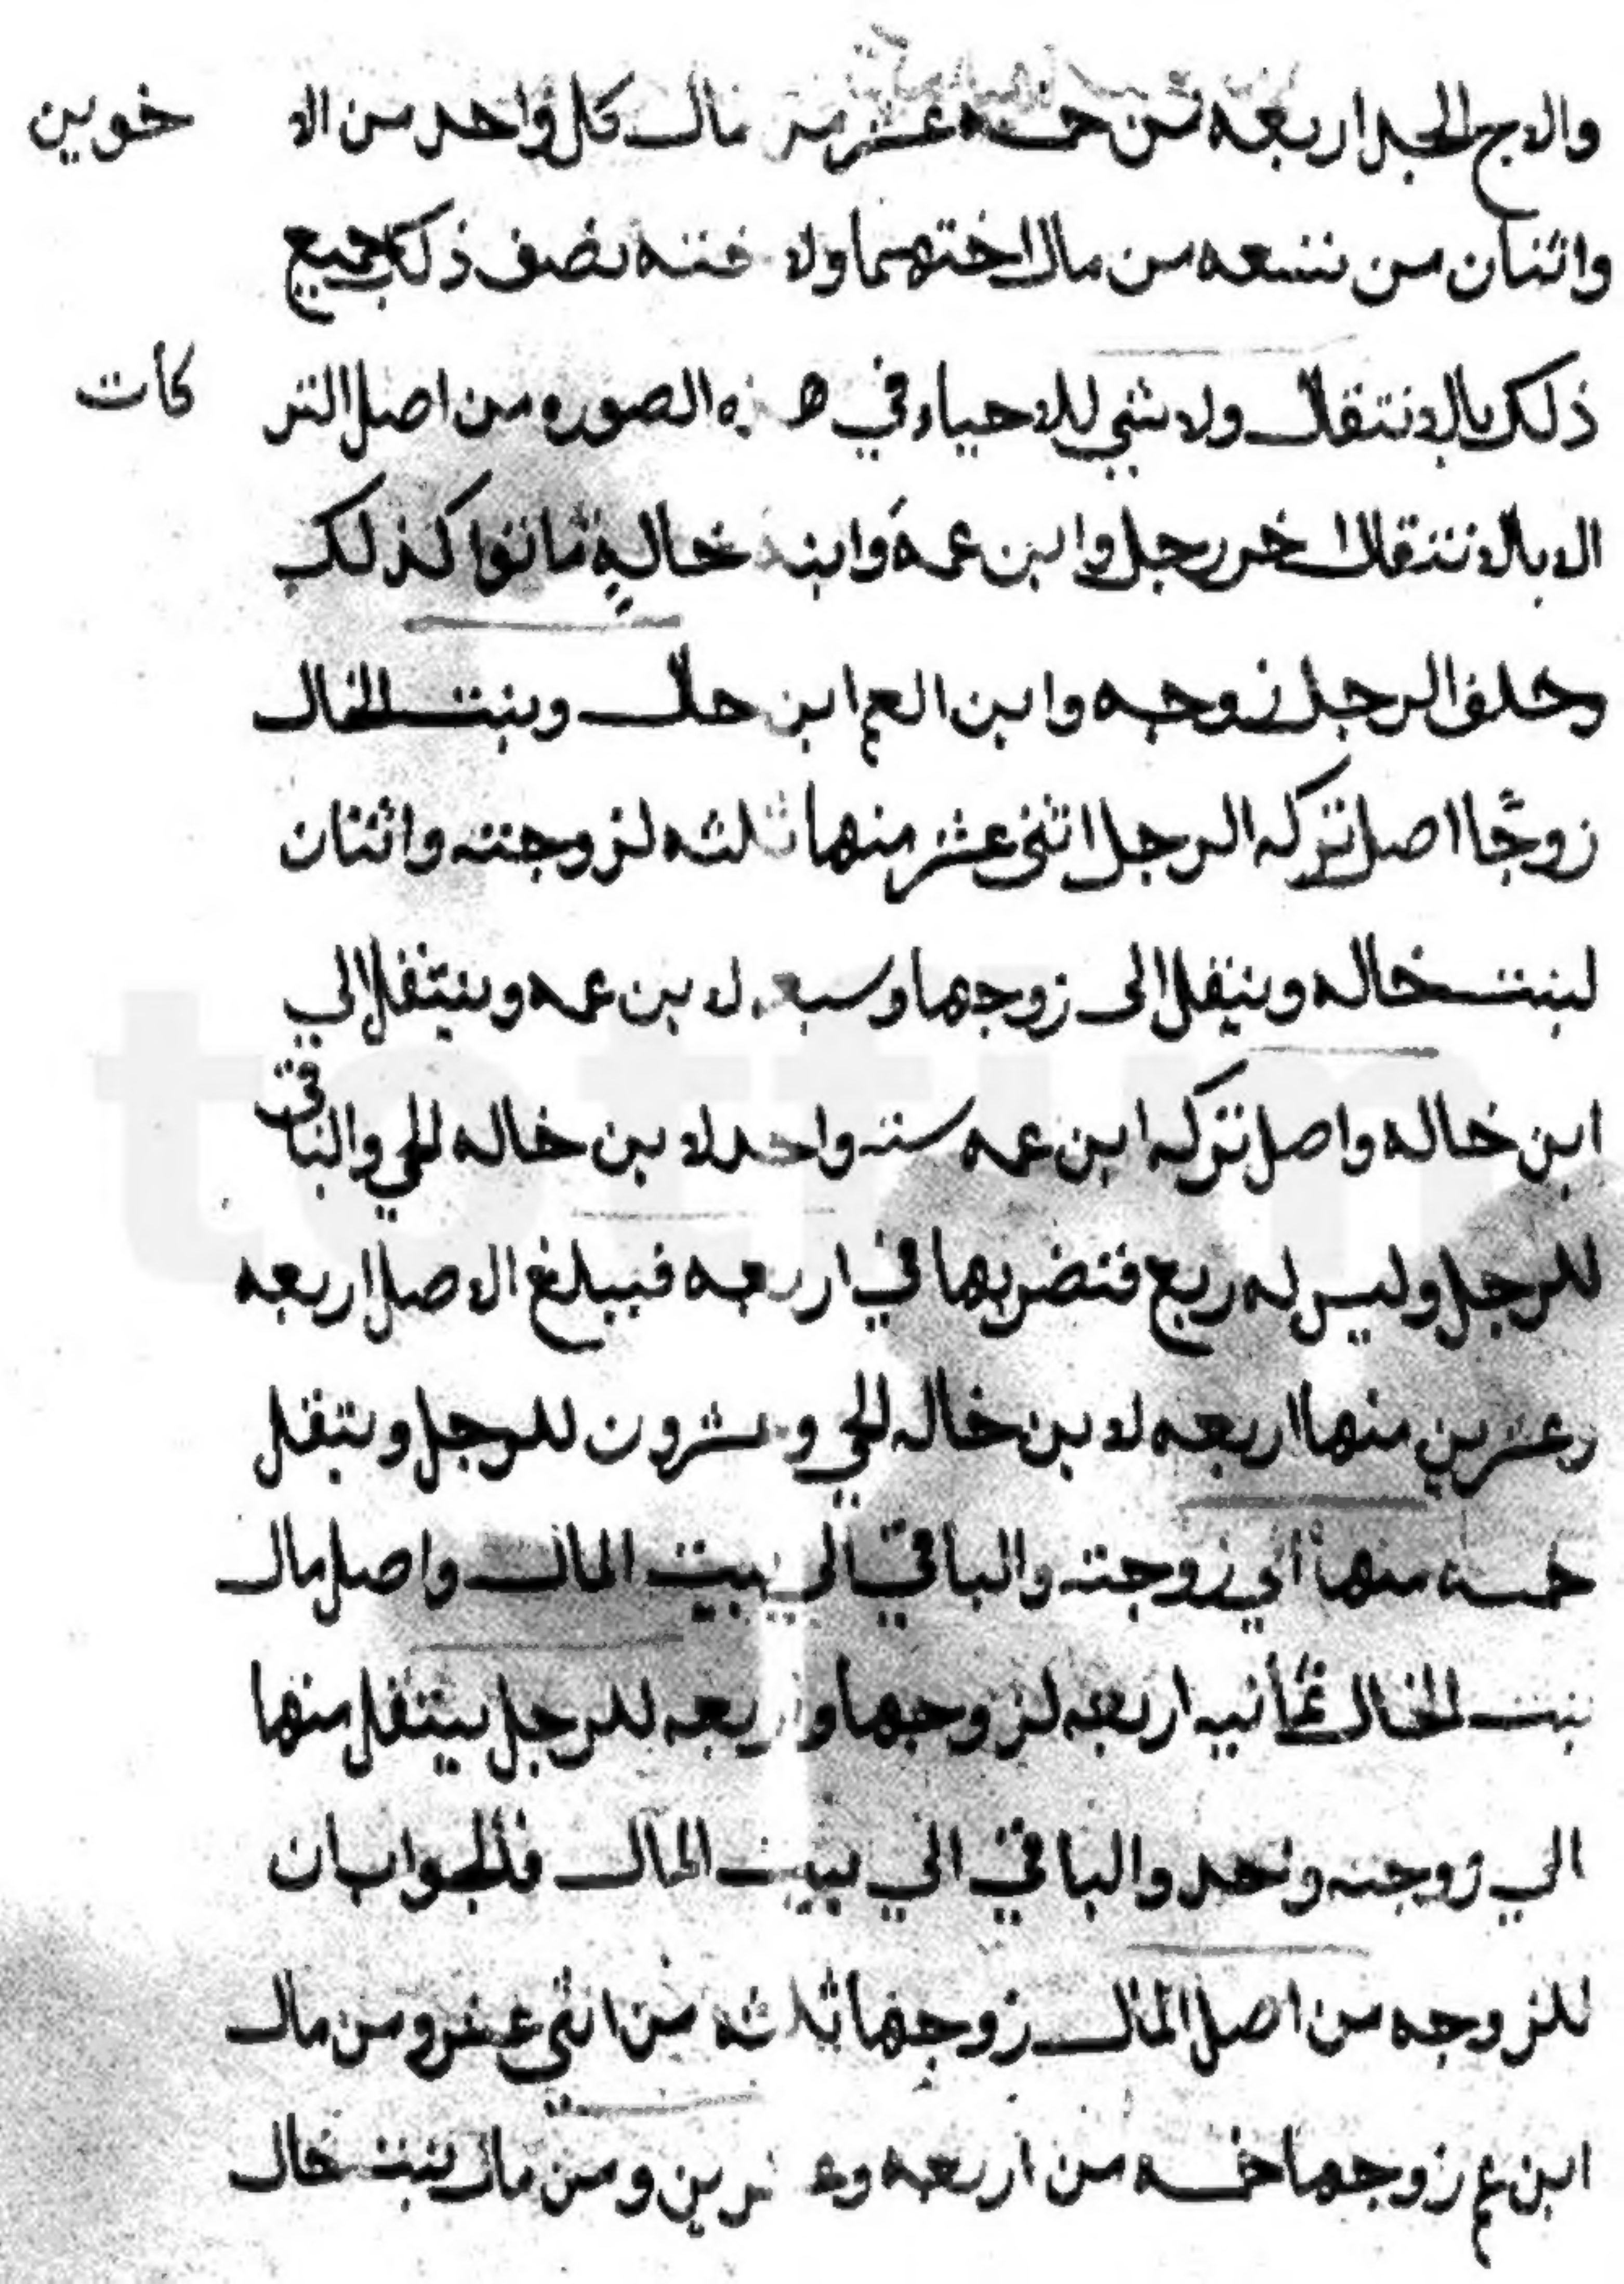 والاخ الجد اربعه من خمسه عشر من مال كل واحد من الا خوين
واثنان من تسعه من مال اختهما ولا خته نصف ذلك جميع
ذلك بالانتقال ولا شي للاحياء في هذه الصوره من اصل التر كات
الا بالانتقال اخر رجل وابن عمه وابنة خاله ماتوا كذلك
وخلف الرجل زوجه وابن العم ابن خال وبنت الخال
زوجا اصل تركه الرجل اثنى عشر منها ثلثه لزوجته واثنان
لبنت خاله وينتقل الى زوجها وسبعه لا بن عمه وينتقل الي
ابن خاله واصل تركه ابن عمه سته واحد لا بن خاله الحي والباقي
للرجل وليس له ربع فتضربها في اربعه فيبلغ الاصل اربعه
وعشرين منها اربعه لا بن خاله الحي وعشرون للرجل وينتقل
خمسه منها الي زوجته والباقي الي بيت المال واصل مال
بنت الخال ثمانيه اربعه لزوجها واربعه للرجل ينتقل منها
الي زوجته واحد والباقي الي بيت المال فالجواب ان
للزوجه من اصل المال زوجها ثلاثه من اثني عشر ومن مال
ابن عم زوجها خمسه من اربعه وعشرين ومن مال بنت خال